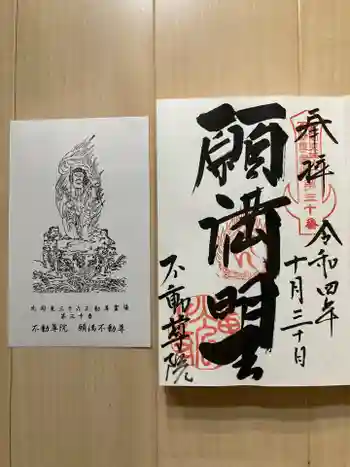 北関東三十六不動尊霊場
第三十番
不動尊院 願満不動尊
奉拝
第三十番
令和四年
十月三十日
願満望
不動尊院